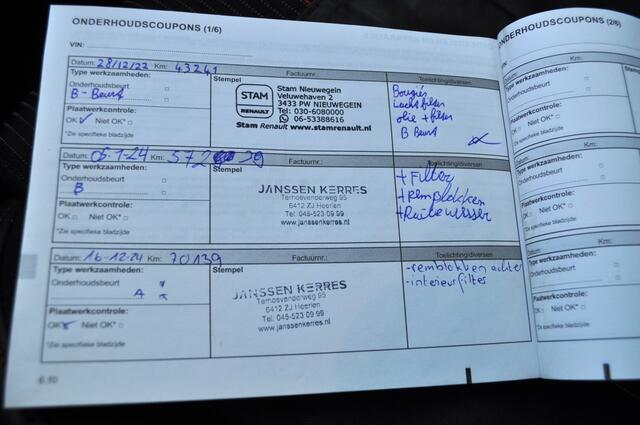 ONDERHOUDSCOUPONS (1/6)
VIN:
Datum: 28/12/22 Km: 43241
Type werkzaamheden:
Onderhoudsbeurt
B - Beurt
Plaatwerkcontrole:
OK Niet OK*
*Zie specifieke bladzijde
Stempel
Factuurnr.:
STAM
RENAULT
Stam Nieuwegein
Veluwehaven 2
3433 PW NIEUWEGEIN
Tel: 030-6080000
06-53388616
Stam Renault www.stamrenault.nl
Toelichting/diversen
Bougies
Luchtfilter
olie + filter
B Beurt
Datum: 05-1-24 Km: 572 29
Type werkzaamheden:
Onderhoudsbeurt
B
Plaatwerkcontrole:
OK Niet OK*
*Zie specifieke bladzijde
Stempel
Factuurnr.:
JANSSEN KERRES
Terhoevenderweg 95
6412 ZJ Heerlen
Tel. 045-523 09 99
www.janssenkerres.nl
Toelichting/diversen
+ Filter
+ Remblokken
+ Ruitewisser
Datum: 16-12-24 Km: 70139
Type werkzaamheden:
Onderhoudsbeurt
A
Plaatwerkcontrole:
OK Niet OK*
*Zie specifieke bladzijde
Stempel
Factuurnr.:
JANSSEN KERRES
Terhoevenderweg 95
6412 ZJ Heerlen
Tel. 045-523 09 99
www.janssenkerres.nl
Toelichting/diversen
- remblokken achter
- interieurfilter
6.10
ONDERHOUDSCOUPONS (2/6)
VIN:
Datum:
Type werkzaamheden:
Onderhoudsbeurt
Plaatwerkcontrole:
OK Niet OK*
*Zie specifieke bladzijde
Datum:
Type werkzaamheden:
Onderhoudsbeurt
Plaatwerkcontrole:
OK Niet OK*
*Zie specifieke bladzijde
Datum:
Type werkzaamheden:
Onderhoudsbeurt
Plaatwerkcontrole:
OK Niet OK*
*Zie specifieke bladzijde